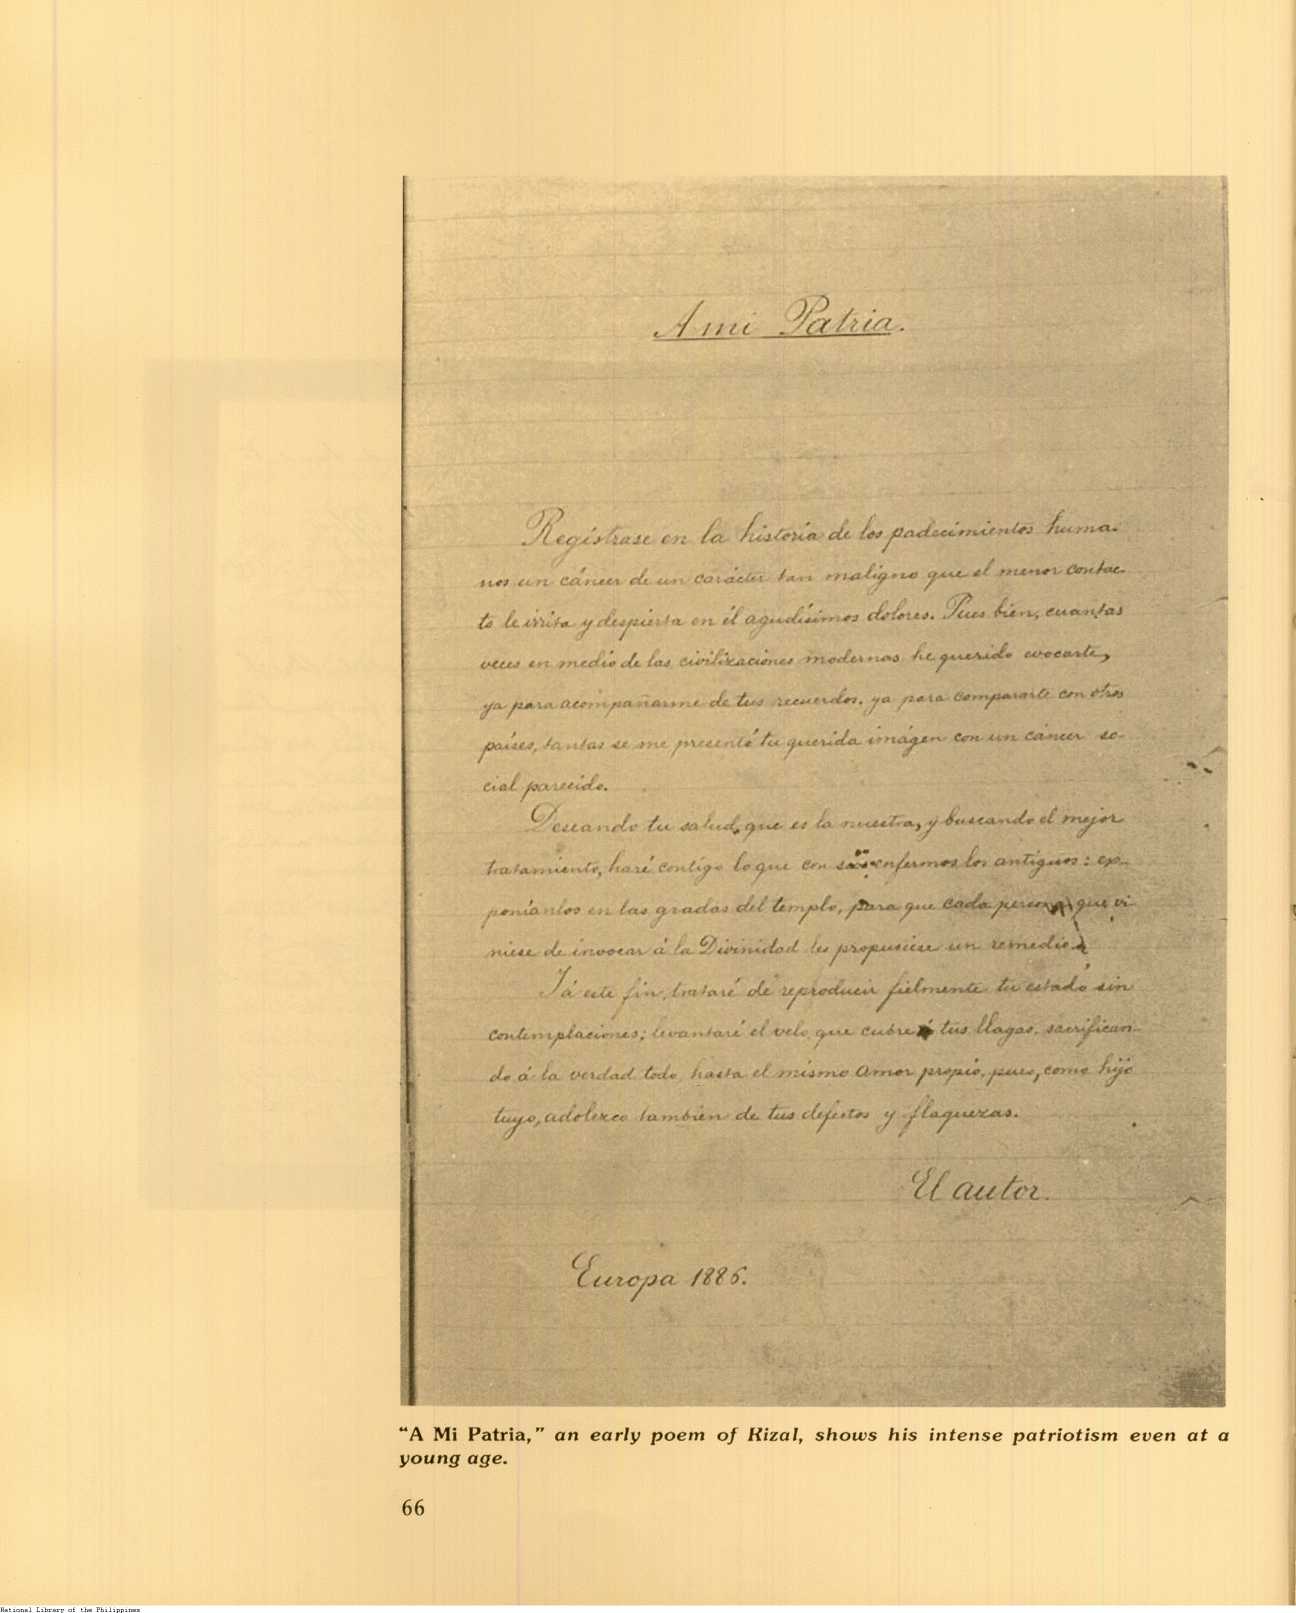 A mi Patria.
Regístrase en la historia de los padecimientos huma-
nos un cáncer de un carácter tan maligno que el menor contac-
to le irrita y despierta en él agudísimos dolores. Pues bien, cuantas
veces en medio de las civilizaciones modernas he querido evocarte,
ya para acompañarme de tus recuerdos, ya para compararte con otros
países, tantas se me presentó tu querida imágen con un cáncer so-
cial parecido.
Deseando tu salud, que es la nuestra, y buscando el mejor
tratamiento, haré contigo lo que con sus enfermos los antiguos: ex-
poníanlos en las gradas del templo, para que cada persona que vi-
niese de invocar á la Divinidad les propusiese un remedio.
Y á este fin, trataré de reproducir fielmente tu estado sin
contemplaciones; levantaré el velo que cubre á tus llagas, sacrifican-
do á la verdad todo, hasta el mismo amor propio, pues, como hijo
tuyo, adolezco tambien de tus defectos y flaquezas.
El autor.
Europa 1886.
"A Mi Patria," an early poem of Rizal, shows his intense patriotism even at a
young age.
66
National Library of the Philippines